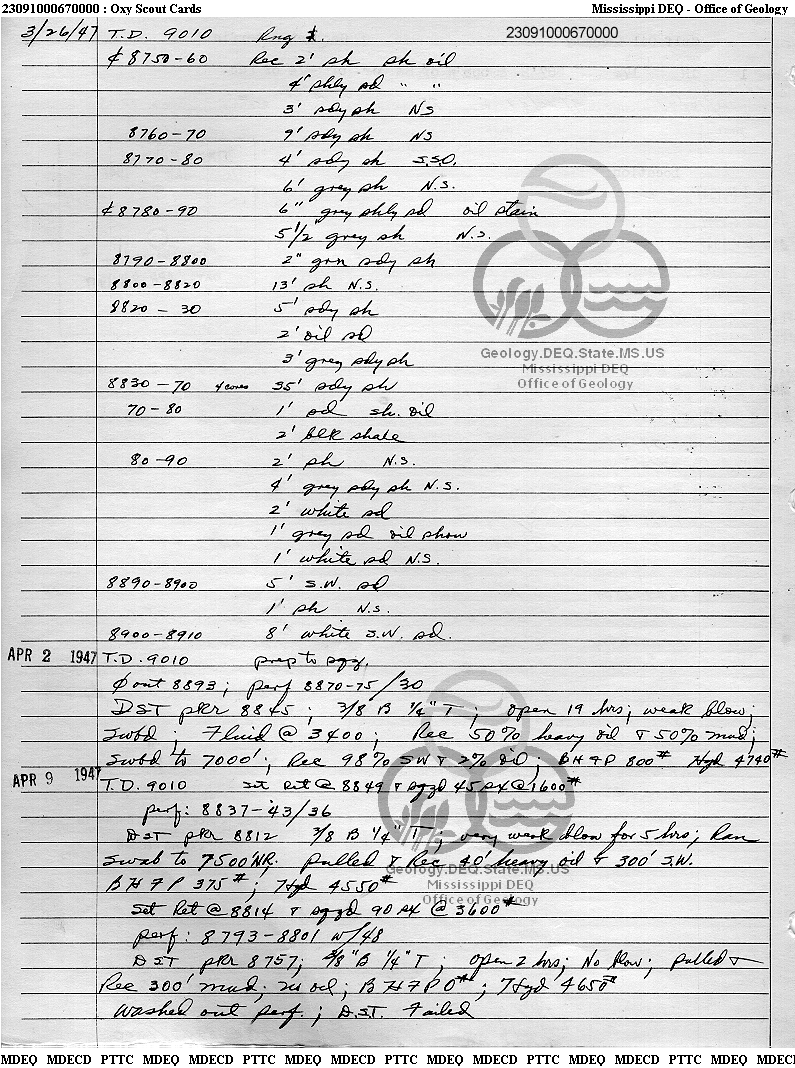 23091000670000 : Oxy Scout Cards Mississippi DEQ - Office of Geology
3/26/47 T.D. 9010 Rng 23091000670000
¢ 8750-60 Rec 2' sh sh oil
4' shly sd " "
3' sdy sh NS
8760-70 9' sdy sh NS
8770-80 4' sdy sh S.S.O.
6' grey sh N.S.
¢ 8780-90 6" grey shly sd oil stain
5 1/2" grey sh N.S.
8790-8800 2" grn sdy sh
8800-8820 13' sh N.S.
8820 - 30 5' sdy sh
2' oil sd
Geology.DEQ.State.MS.US
3' grey sdy sh
Mississippi DEQ
Office of Geology
8830-70 4 cores 35' sdy sh
70-80 1' sd sh. oil
2' blk shale
80-90 2' sh N.S.
4' grey sdy sh N.S.
2' white sd
1' grey sd oil show
1' white sd N.S.
8890-8900 5' S.W. sd
1' sh N.S.
8900-8910 8' white S.W. sd.
APR 2 1947 T.D. 9010 prep to sqz.
Ø out 8893; perf 8870-75/30
DST pkr 8845; 3/8 B 1/4" T; open 19 hrs; weak blow;
Swbd; Fluid @ 3400; Rec 50% heavy oil & 50% mud;
Swbd to 7000'; Rec 98% SW & 2% oil; BHFP 800# Hyd 4740#
APR 9 1947 T.D. 9010 Set Ret @ 8849 & sqzd 45 sx @ 1600#
perf: 8837-43/36
DST pkr 8812 3/8 B 1/4" T; very weak blow for 5 hrs; Ran
Swab to 7500' NR. pulled & Rec 40' heavy oil & 300' S.W.
Geology.DEQ.State.MS.US
BHFP 375#; Hyd 4550#
Mississippi DEQ
Office of Geology
Set Ret @ 8814 & sqzd 90 sx @ 3600#
perf: 8793-8801 w/48
DST pkr 8757; 3/8" B 1/4" T; open 2 hrs; No blow; pulled &
Rec 300' mud; no oil; BHFP 0#; Hyd 4650#
Washed out perf.; D.S.T. Failed
MDEQ MDECD PTTC MDEQ MDECD PTTC MDEQ MDECD PTTC MDEQ MDECD PTTC MDEQ MDECD PTTC MDEQ MDECD